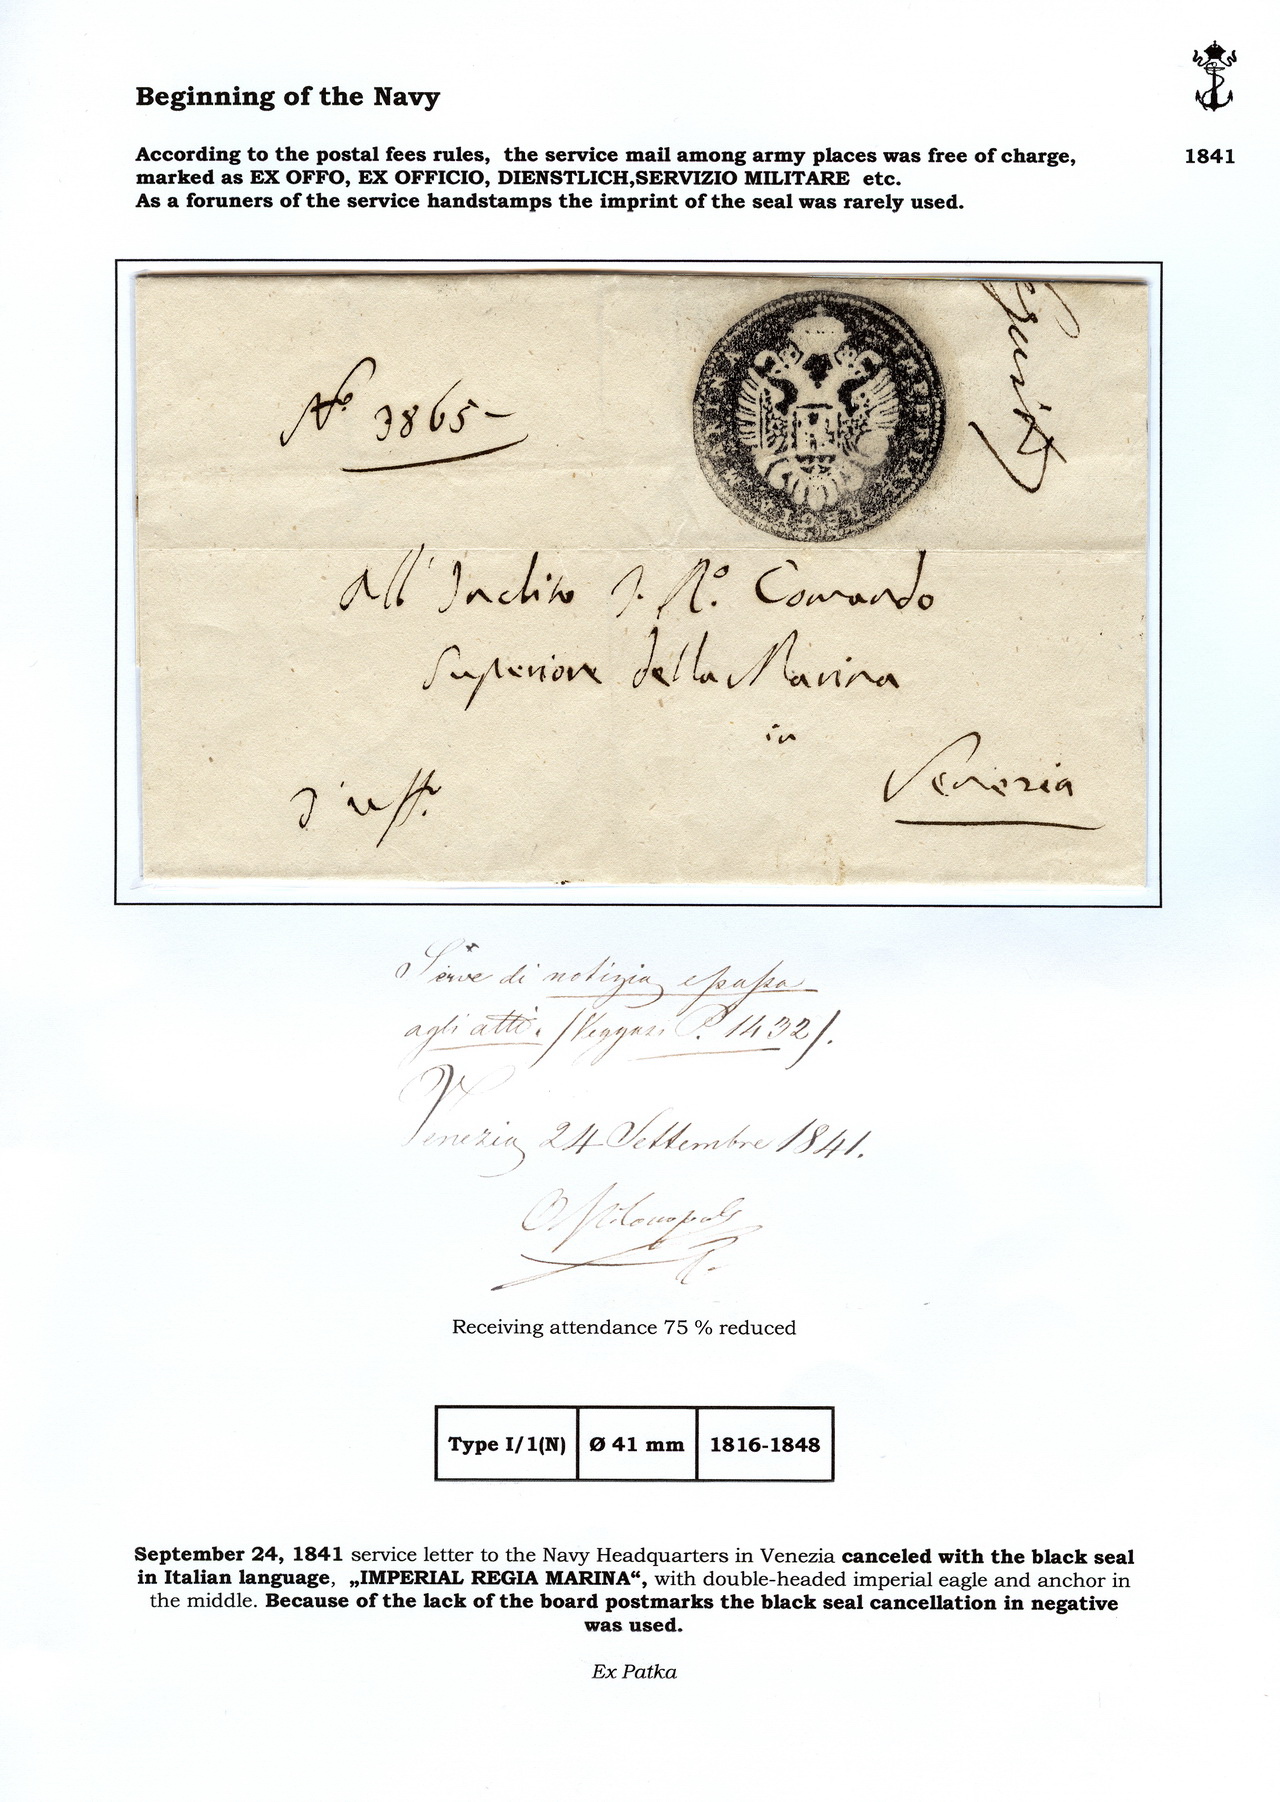 Beginning of the Navy
According to the postal fees rules, the service mail among army places was free of charge,
marked as EX OFFO, EX OFFICIO, DIENSTLICH,SERVIZIO MILITARE etc.
As a foruners of the service handstamps the imprint of the seal was rarely used.
1841
No 3865-
IMPERIAL REGIA MARINA
All' Inclito I. Ro. Comando
Superiore della Marina
in
Venezia
d'uff.
Serve di notizia e passa
agli atti. (Veggasi P. 1432).
Venezia 24 Settembre 1841.
Receiving attendance 75 % reduced
Type I/1(N) Ø 41 mm 1816-1848
September 24, 1841 service letter to the Navy Headquarters in Venezia canceled with the black seal
in Italian language, „IMPERIAL REGIA MARINA“, with double-headed imperial eagle and anchor in
the middle. Because of the lack of the board postmarks the black seal cancellation in negative
was used.
Ex Patka